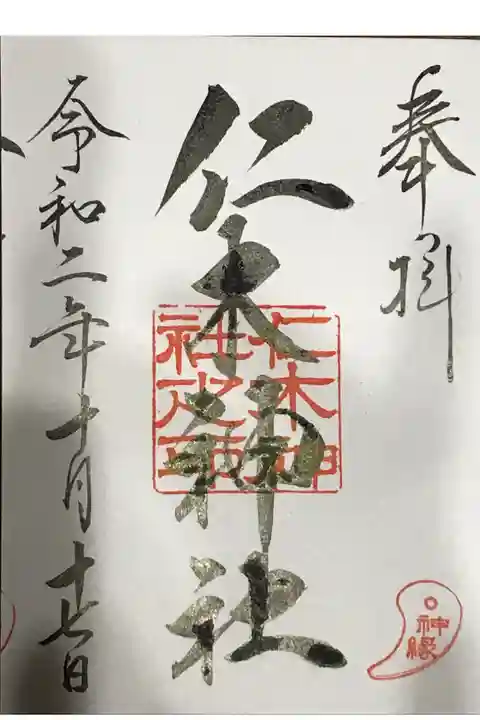 奉拝
仁木神社
仁木神
社之印
令和二年十月十七日
神
縁